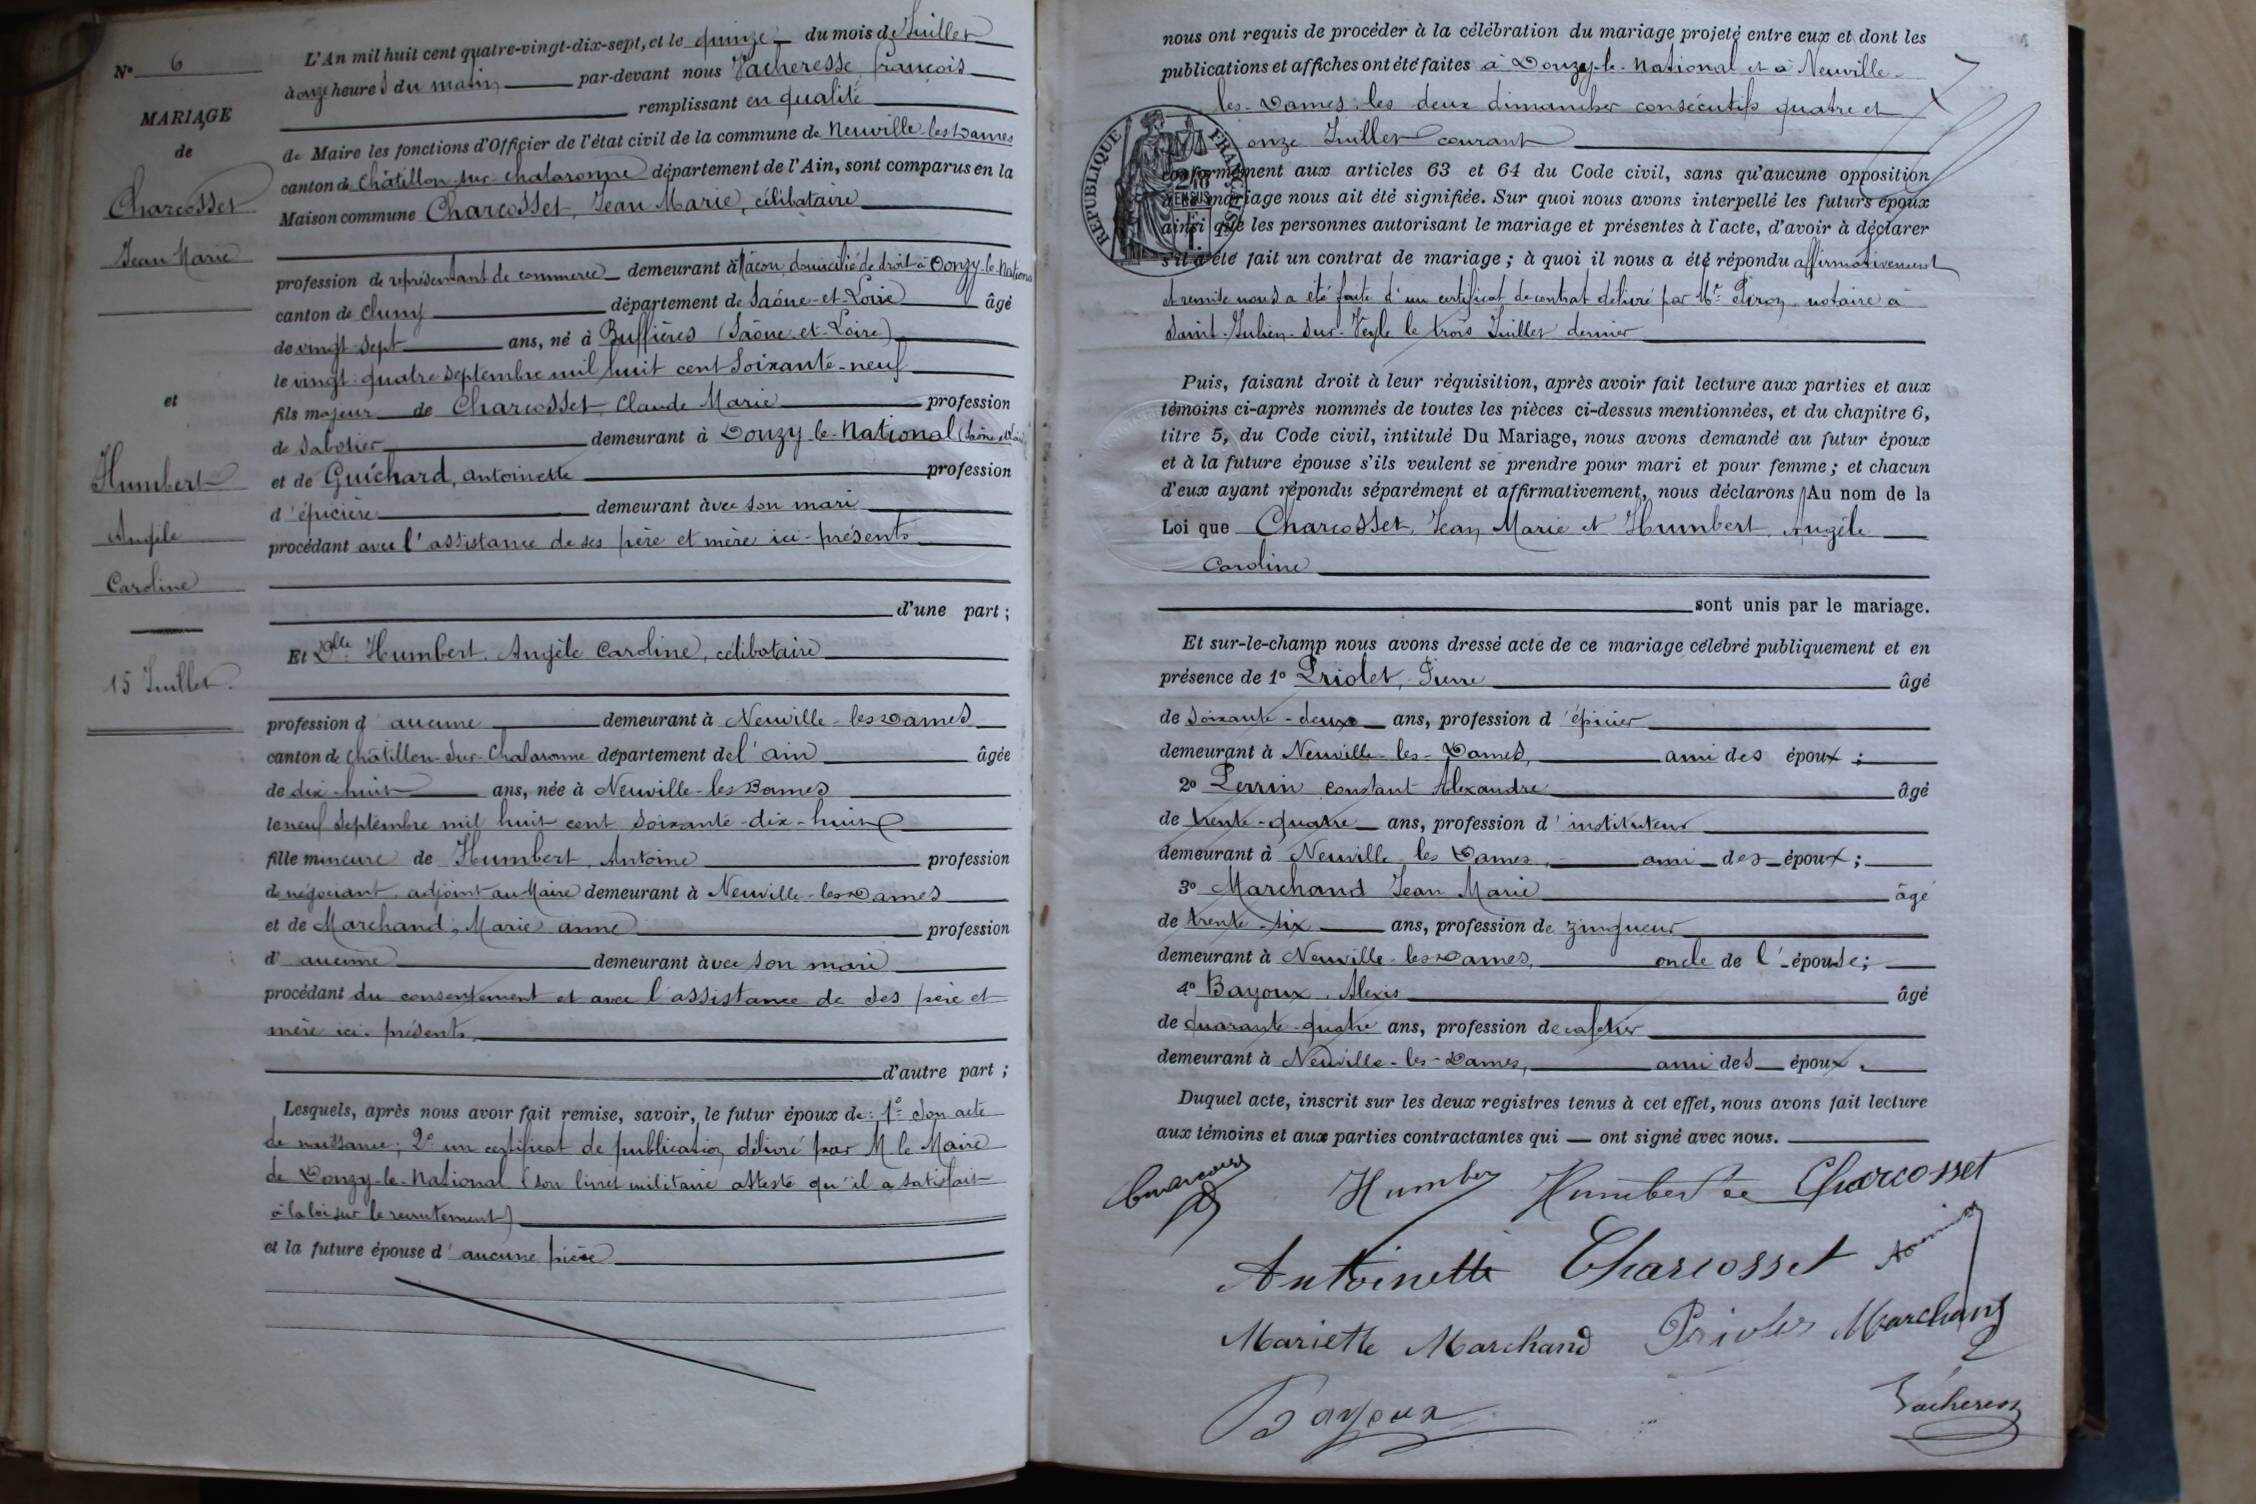 N° 6
MARIAGE
de
Charcosset
Jean Marie
et
Humbert
Angèle
Caroline
15 Juillet.
L'An mil huit cent quatre-vingt-dix-sept, et le quinze du mois de Juillet
à onze heures du matin par-devant nous Vacheresse, françois
remplissant en qualité
de Maire les fonctions d'Officier de l'état civil de la commune de Neuville-les-Dames
canton de Châtillon-sur-Chalaronne département de l'Ain, sont comparus en la
Maison commune Charcosset, Jean Marie, célibataire
profession de représentant de commerce demeurant à Mâcon, domicilié de droit à Donzy-le-National
canton de Cluny département de Saône-et-Loire âgé
de vingt-sept ans, né à Buffières (Saône-et-Loire)
le vingt-quatre septembre mil huit cent soixante-neuf
fils majeur de Charcosset, Claude Marie profession
de sabotier demeurant à Donzy-le-National (Saône et Loire)
et de Guichard, antoinette profession
d'épicière demeurant avec son mari
procédant avec l'assistance de ses père et mère ici-présents
d'une part;
Et Dlle Humbert, Angèle Caroline, célibataire
profession d'aucune demeurant à Neuville-les-Dames
canton de Châtillon-sur-Chalaronne département de l'ain âgée
de dix-huit ans, née à Neuville-les-Dames
le neuf septembre mil huit cent soixante-dix-huit
fille mineure de Humbert, Antoine profession
de négociant, adjoint au Maire demeurant à Neuville-les-Dames
et de Marchand, Marie anne profession
d'aucune demeurant avec son mari
procédant du consentement et avec l'assistance de ses père et
mère ici-présents
d'autre part;
Lesquels, après nous avoir fait remise, savoir, le futur époux de: 1° son acte
de naissance; 2° un certificat de publication délivré par M le Maire
de Donzy-le-National (son livret militaire atteste qu'il a satisfait
à la loi sur le recrutement)
et la future épouse d'aucune pièce
nous ont requis de procéder à la célébration du mariage projeté entre eux et dont les
publications et affiches ont été faites à Donzy-le-National et à Neuville-
les-Dames, les deux dimanches consécutifs quatre et
onze Juillet courant
REPUBLIQUE FRANÇAISE
conformément aux articles 63 et 64 du Code civil, sans qu'aucune opposition
à ce mariage nous ait été signifiée. Sur quoi nous avons interpellé les futurs époux
ainsi que les personnes autorisant le mariage et présentes à l'acte, d'avoir à déclarer
s'il a été fait un contrat de mariage; à quoi il nous a été répondu affirmativement
et remise nous a été faite d'un certificat de contrat délivré par Me notaire à
Saint-Julien-sur-Veyle le trois Juillet dernier
Puis, faisant droit à leur réquisition, après avoir fait lecture aux parties et aux
témoins ci-après nommés de toutes les pièces ci-dessus mentionnées, et du chapitre 6,
titre 5, du Code civil, intitulé Du Mariage, nous avons demandé au futur époux
et à la future épouse s'ils veulent se prendre pour mari et pour femme; et chacun
d'eux ayant répondu séparément et affirmativement, nous déclarons Au nom de la
Loi que Charcosset, Jean Marie et Humbert, Angèle
Caroline
sont unis par le mariage.
Et sur-le-champ nous avons dressé acte de ce mariage célébré publiquement et en
présence de 1° Priolet, Pierre âgé
de soixante-deux ans, profession d'épicier
demeurant à Neuville-les-Dames, ami des époux;
2° Perrin constant Alexandre âgé
de trente-quatre ans, profession d'instituteur
demeurant à Neuville les Dames, ami des époux;
3° Marchand Jean Marie âgé
de trente-six ans, profession de zingueur
demeurant à Neuville-les-Dames, oncle de l'épouse;
4° Bayoux, Alexis âgé
de quarante-quatre ans, profession de cafetier
demeurant à Neuville-les-Dames, ami des époux.
Duquel acte, inscrit sur les deux registres tenus à cet effet, nous avons fait lecture
aux témoins et aux parties contractantes qui — ont signé avec nous.
Humbert Charcosset
Antoinette Charcosset
Mariette Marchand Priolet Marchand
Bayoux Vacheresse